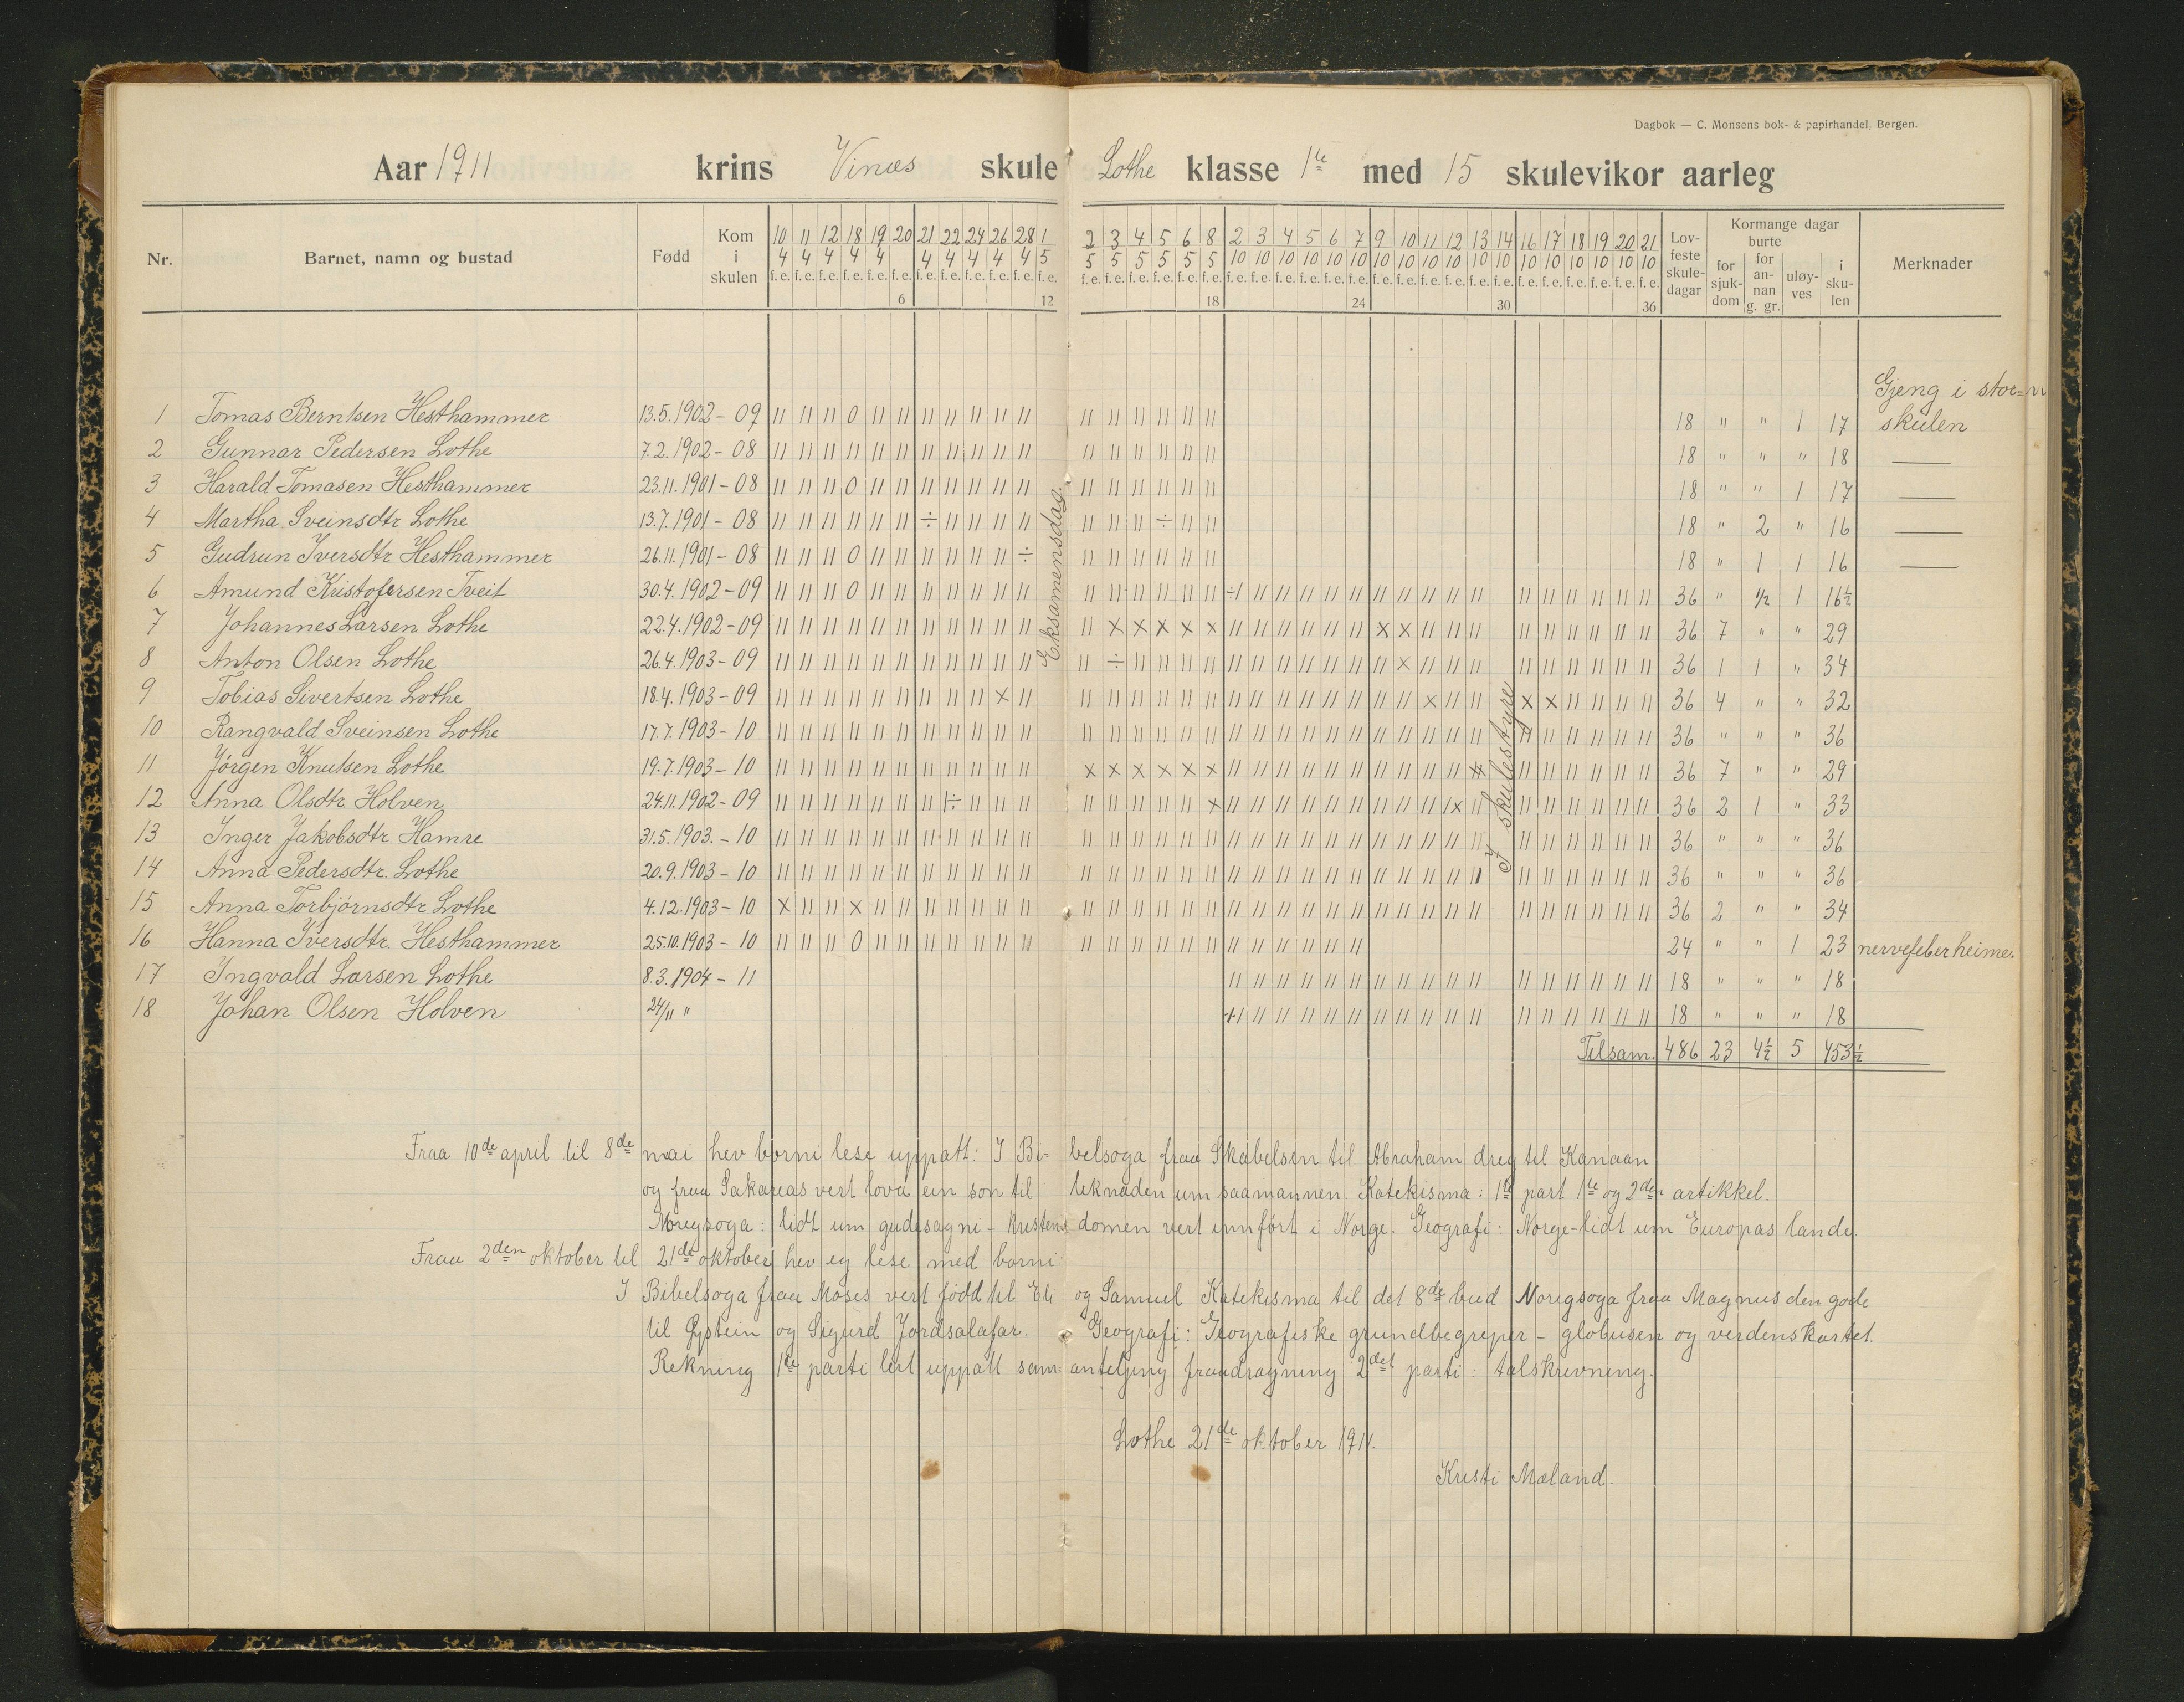 Dagbok — C. Monsens bok- & papirhandel, Bergen.
Aar 1911 krins Vinæs skule Lothe klasse 1te med 15 skulevikor aarleg
Nr. Barnet, namn og bustad Fødd Kom i skulen Lovfeste skuledagar Kormange dagar burte for sjukdom for annan g. gr. uløyves i skulen Merknader
10 11 12 18 19 20 21 22 24 26 28 1 2 3 4 5 6 8 2 3 4 5 6 7 9 10 11 12 13 14 16 17 18 19 20 21
4 4 4 4 4 4 4 4 4 4 5 5 5 5 5 5 5 10 10 10 10 10 10 10 10 10 10 10 10 10 10 10 10 10 10
f. e. f. e. f. e. f. e. f. e. f. e. f. e. f. e. f. e. f. e. f. e. f. e. f. e. f. e. f. e. f. e. f. e. f. e. f. e. f. e. f. e. f. e. f. e. f. e. f. e. f. e. f. e. f. e. f. e. f. e. f. e. f. e. f. e. f. e. f. e. f. e.
6 12 18 24 30 36
Gjeng i stor=
1 Tomas Berntsen Hesthammer 13.5.1902 - 09 18 " " 1 17 skulen
2 Gunnar Pedersen Lothe 7.2.1902 - 08 18 " " " 18 —
3 Harald Tomasen Hesthammer 23.11.1901 - 08 18 " " 1 17 —
4 Martha Sveinsdtr Lothe 13.7.1901 - 08 18 " 2 " 16 —
5 Gudrun Iversdtr Hesthammer 26.11.1901 - 08 18 " 1 1 16 —
6 Amund Kristofersen Tveit 30.4.1902 - 09 36 " 1/2 1 16 1/2
7 Johannes Larsen Lothe 22.4.1902 - 09 36 7 " " 29
8 Anton Olsen Lothe 26.4.1903 - 09 36 1 1 " 34
9 Tobias Sivertsen Lothe 18.4.1903 - 09 36 4 " " 32
10 Rangvald Sveinsen Lothe 17.7.1903 - 10 36 " " " 36
11 Jörgen Knutsen Lothe 19.7.1903 - 10 36 7 " " 29
12 Anna Olsdtr. Holven 24.11.1902 - 09 36 2 1 " 33
13 Inger Jakobsdtr. Hamre 31.5.1903. - 10 36 " " " 36
14 Anna Pedersdtr. Lothe 20.9.1903 - 10 36 " " " 36
15 Anna Torbjörnsdtr Lothe 4.12.1903 - 10 36 2 " " 34
16 Hanna Iversdtr. Hesthammer 25.10.1903 - 10 24 " " 1 23 nervefeber heime.
17 Ingvald Larsen Lothe 8.3.1904 - 11 18 " " " 18
18 Johan Olsen Holven 24/11 " 18 " " " 18
Eksamensdag.
I skulestyre
Tilsam. 486 23 4 1/2 5 453 1/2
Fraa 10de april til 8de mai hev borni lese uppatt: I Bibelsoga fraa Skabelsen til Abraham dreg til Kanaan
og fraa Sakarias vert lova ein son til liknaden um saamannen. Katekisma: 1te part 1te og 2den artikkel.
Noregsoga: lidt um gudesagni - Kristendomen vert innfört i Norge. Geografi: Norge - lidt um Europas lande.
Fraa 2den oktober til 21de oktober hev eg lese med borni:
I Bibelsoga fraa Moses vert fødd til Eli og Samuel Katekisma til det 8de bud Noregsoga fraa Magnus den gode
til Øystein og Sigurd Jordsalafar. Geografi: Geografiske grundbegreper - globusen og verdenskartet.
Rekning 1te parti lert uppatt samanteljing fraadragning 2det parti: talskrivning.
Lothe 21de oktober 1911.
Kristi Mæland.